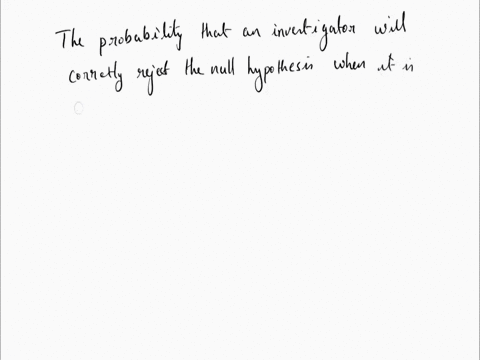 The probability that an investigator will
correctly reject the null hypothesis when it is